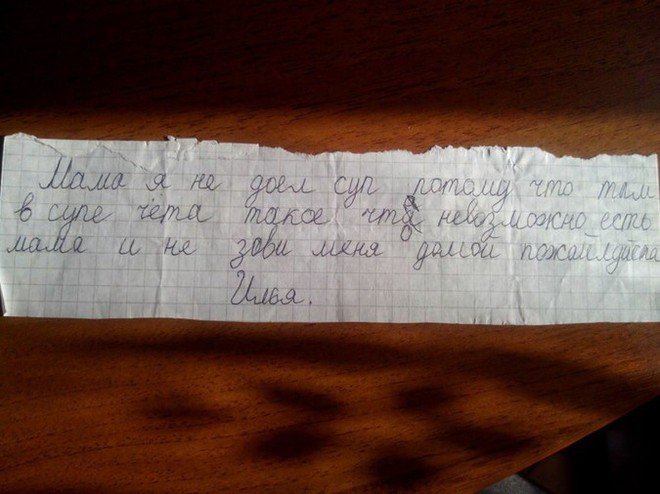 Мама я не доел суп потому что там
в супе чета такое что невозможно есть
мама и не зови меня домой пожайлдиста
Илья.